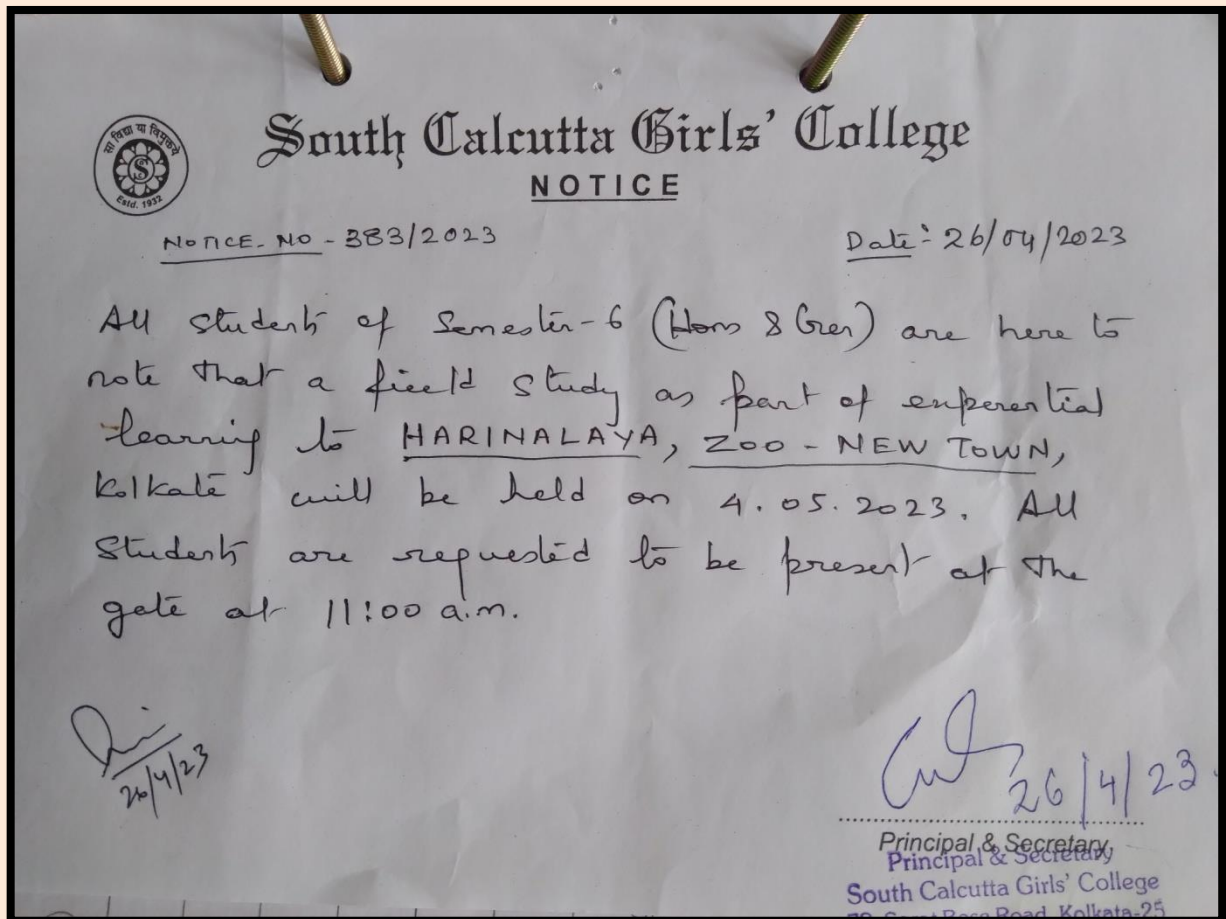 सा विद्या या विमुक्तये
S
Estd. 1932
South Calcutta Girls' College
NOTICE
NOTICE-NO - 383/2023
Date:- 26/04/2023
All students of Semester-6 (Hons & Gen) are here to
note that a field study as part of experential
learning to HARINALAYA, ZOO - NEW TOWN,
Kolkata will be held on 4.05.2023. All
Students are requested to be present at the
gate at 11:00 a.m.
26/4/23
26/4/23
Principal & Secretary
Principal & Secretary
South Calcutta Girls' College
Road, Kolkata-25